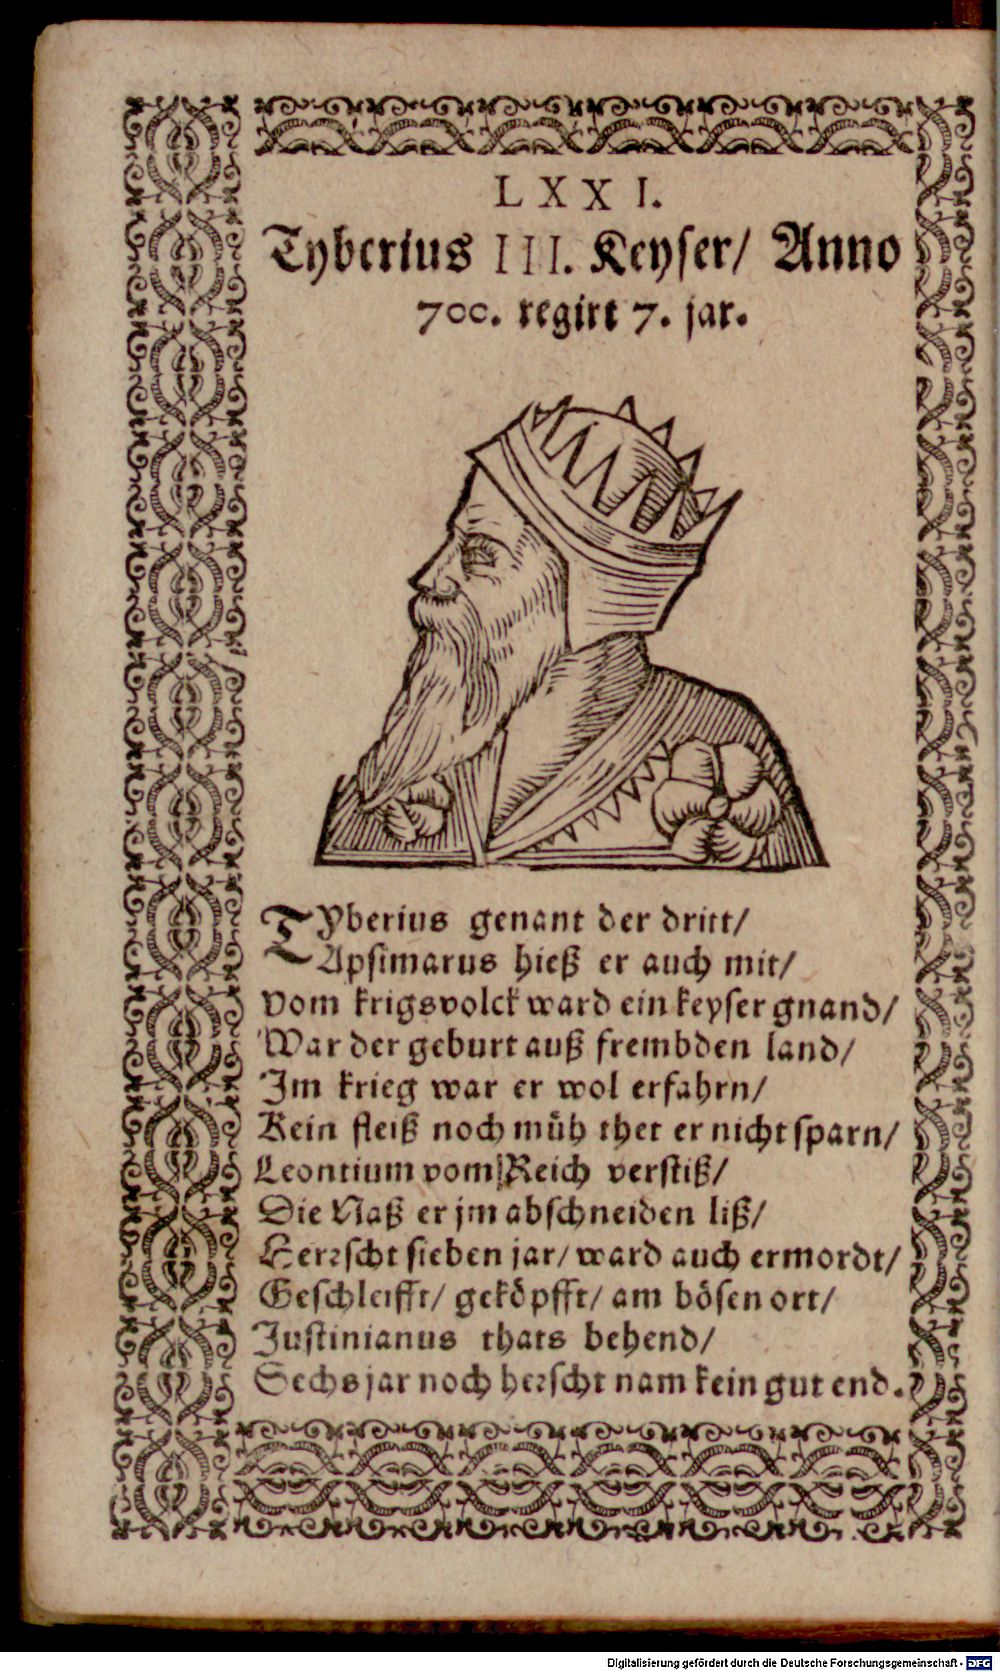 LXXI.
Tyberius III. Keyser/ Anno
700. regirt 7. jar.
TYberius genant der dritt/
Apsimarus hieß er auch mit/
vom krigsvolck ward ein keyser gnand/
War der geburt auß frembden land/
Im krieg war er wol erfahrn/
Kein fleiß noch müh thet er nicht sparn/
Leontium vom Reich verstiß/
Die Naß er jm abschneiden liß/
Herrscht sieben jar/ ward auch ermordt/
Geschleifft/ geköpfft/ am bösen ort/
Justinianus thats behend/
Sechs jar noch herscht nam kein gut end.
Digitalisierung gefördert durch die Deutsche Forschungsgemeinschaft - DFG